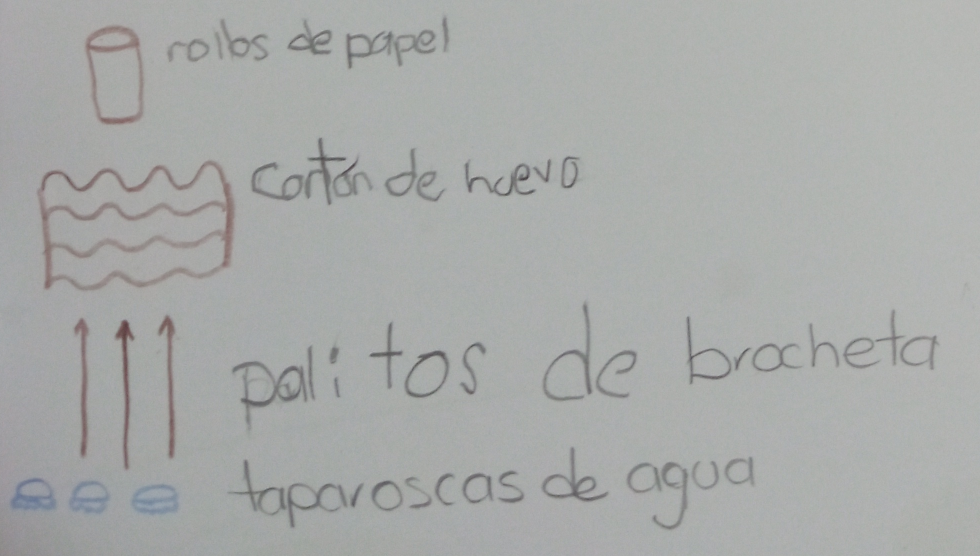 rollos de papel
cartón de huevo
palitos de brocheta
taparoscas de agua